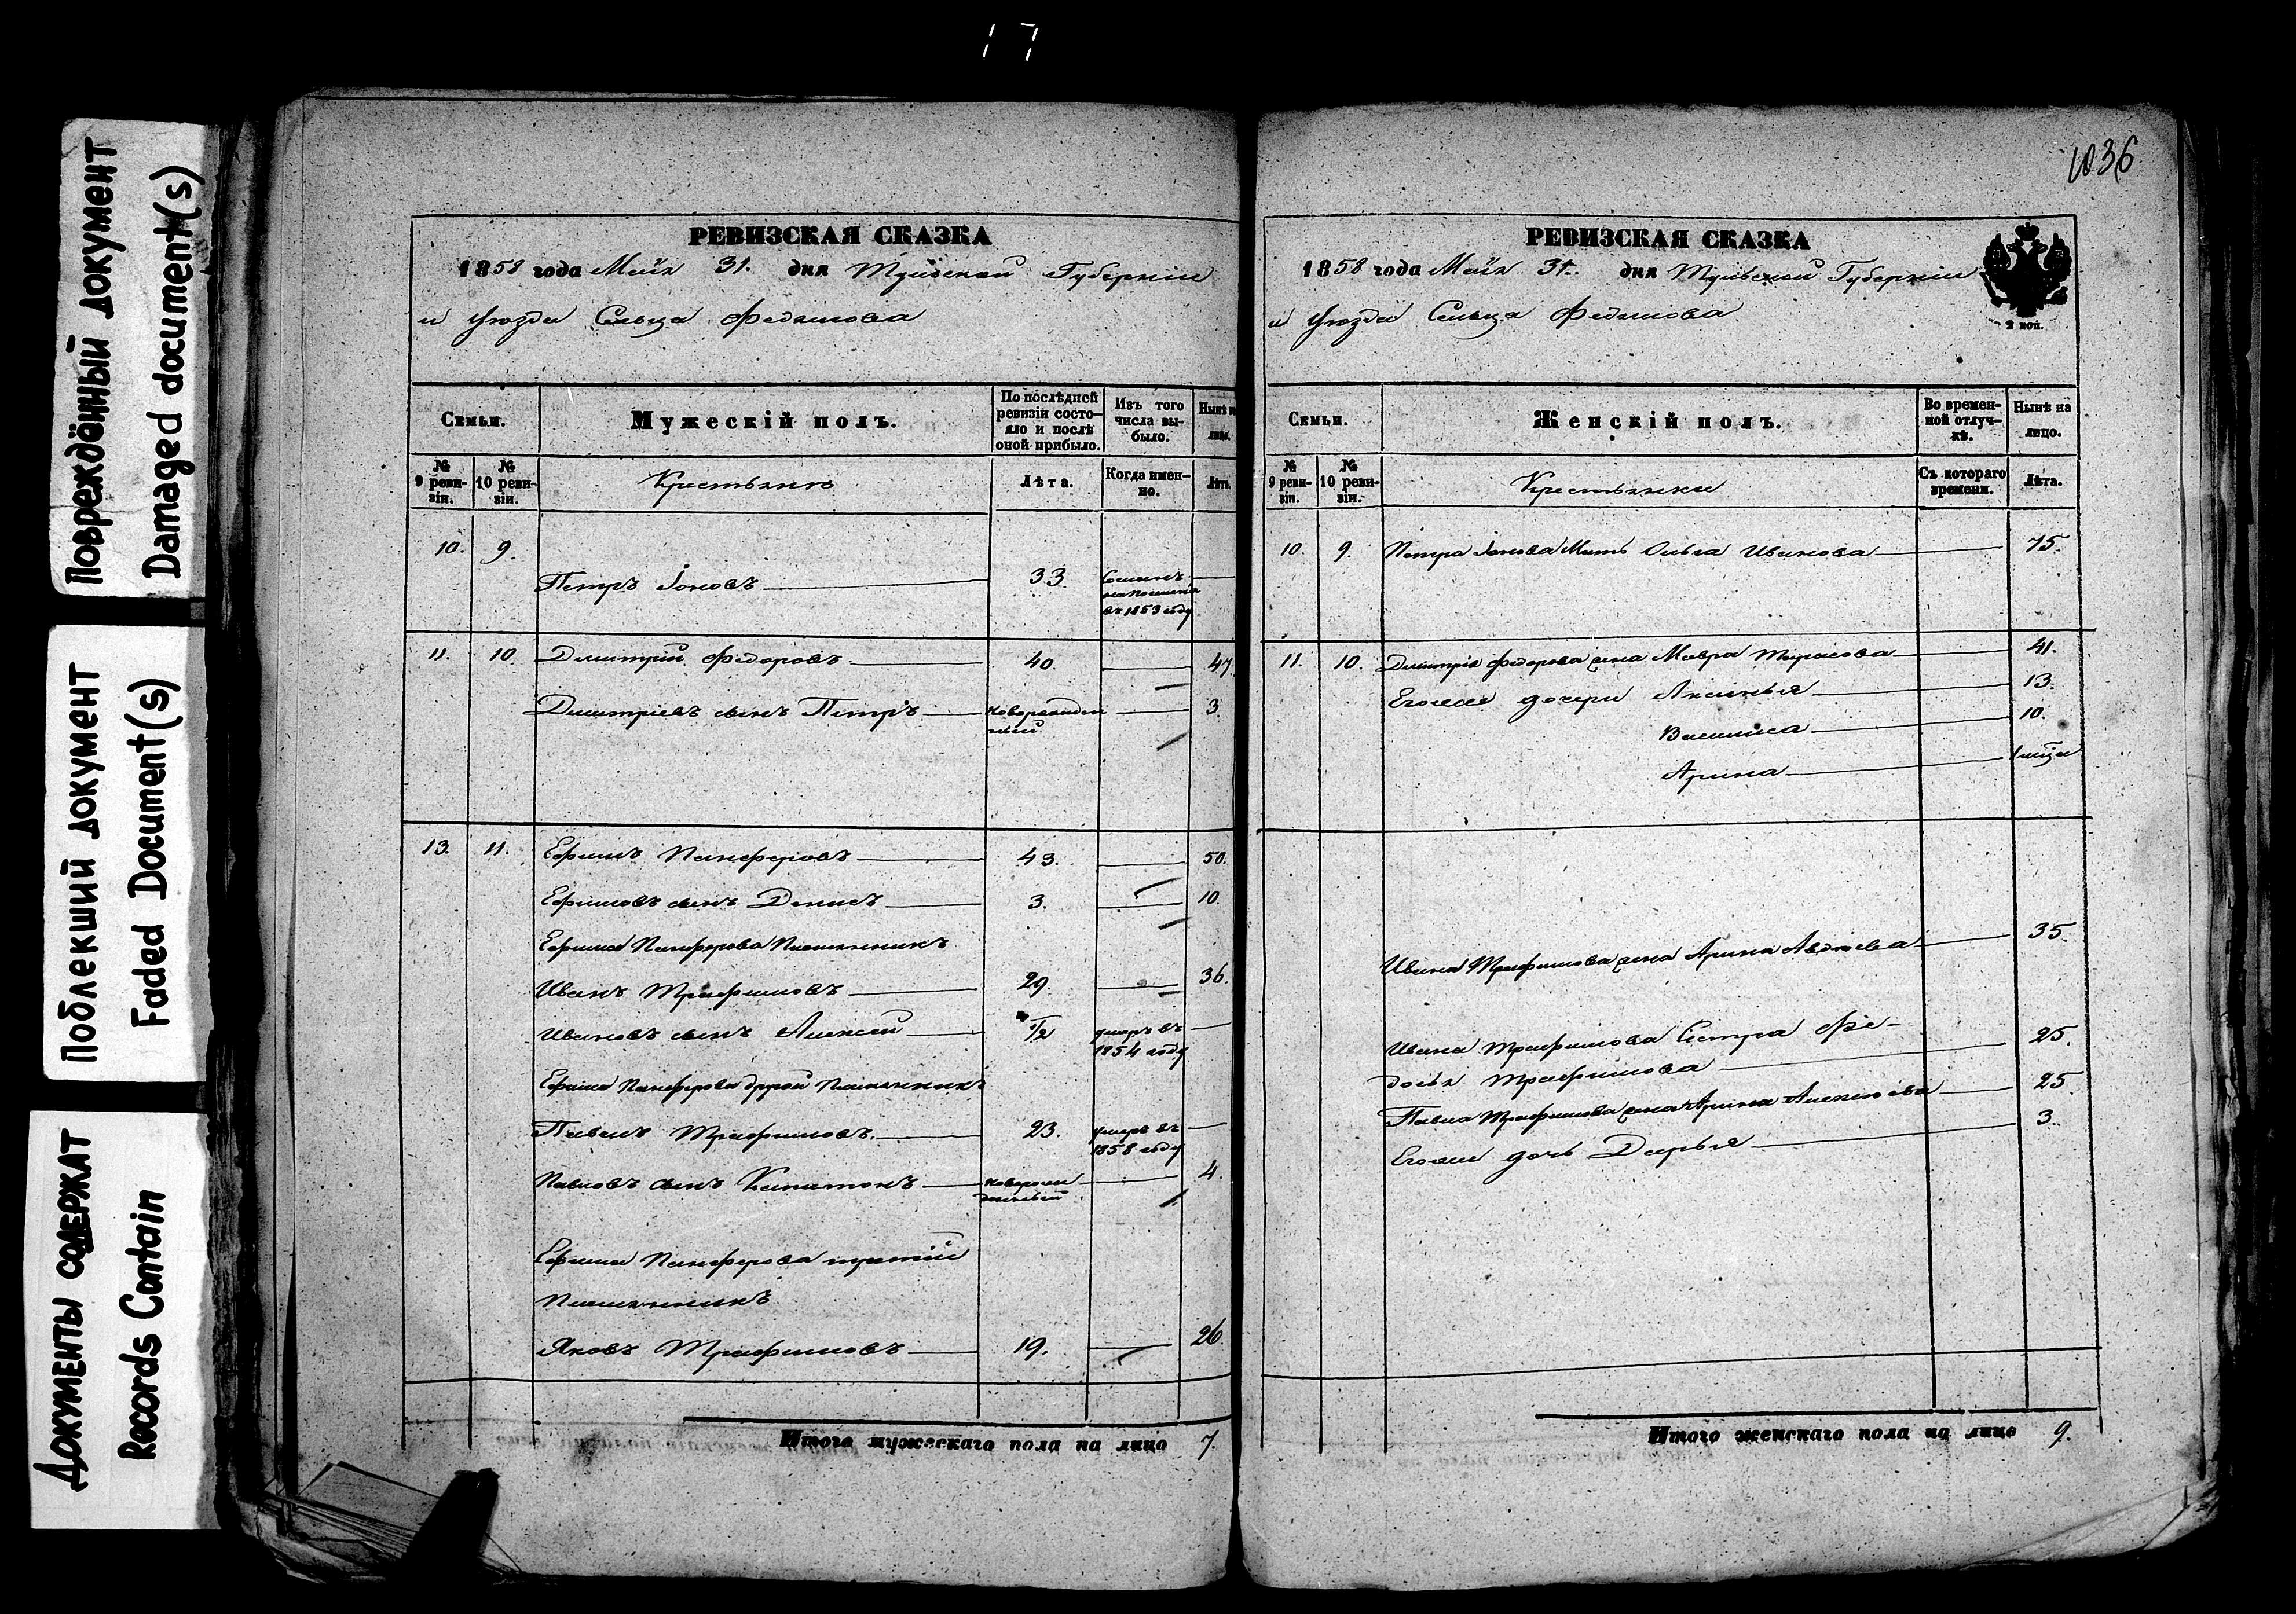 17
Повреждённый документ
Damaged document(s)
Поблекший документ
Faded Document(s)
Документы содержат
Records Contain
РЕВИЗСКАЯ СКАЗКА
1858 года Маія 31. дня Тульской Губерніи
и уѣзда Сельца Федяшова
Семьи.
Мужескій полъ.
По послѣдней ревизіи состояло и послѣ оной прибыло.
Изъ того числа выбыло.
Нынѣ на лицо.
№ 9 ревизіи.
№ 10 ревизіи.
Крестьяне
Лѣта.
Когда именно.
Лѣта.
10. 9.
Петръ Іоновъ 33.
въ 1853 году
11. 10. Дмитрій Федоровъ 40. 47
Дмитріевъ сынъ Петръ новорожденный 3.
13. 11. Ефимъ Панферовъ 43. 50.
Ефимовъ сынъ Денисъ 3. 10.
Ефима Панферова Племянникъ
Иванъ Трафимовъ 29. 36.
Ивановъ сынъ Алексей 1/2 умеръ въ 1854 году
Ефима Панферова другой Племянникъ
Павелъ Трафимовъ. 23. умеръ въ 1858 году
Павловъ сынъ Капитонъ новорожденный 4.
Ефима Панферова третій
Племянникъ
Яковъ Трафимовъ 19. 26
Итого мужескаго пола на лицо 7.
1036
РЕВИЗСКАЯ СКАЗКА
1858 года Маія 31. дня Тульской Губерніи
и уѣзда Сельца Федяшова
2 коп.
Семьи.
Женскій полъ.
Во временной отлучкѣ.
Нынѣ на лицо.
№ 9 ревизіи.
№ 10 ревизіи.
Крестьянки
Съ котораго времени.
Лѣта.
10. 9. Петра Іонова Мать Ольга Иванова 75.
11. 10. Дмитрія Федорова жена Мавра Тарасова 41.
Егоже дочери Аксинья 13.
Василиса 10.
Арина
Ивана Трафимова жена Арина Авдѣева 35.
Ивана Трафимова Сестра Фе-
досья Трафимова 25.
Павла Трафимова жена Арина Алексѣева 25
Егоже дочь Дарья 3.
Итого женскаго пола на лицо 9.